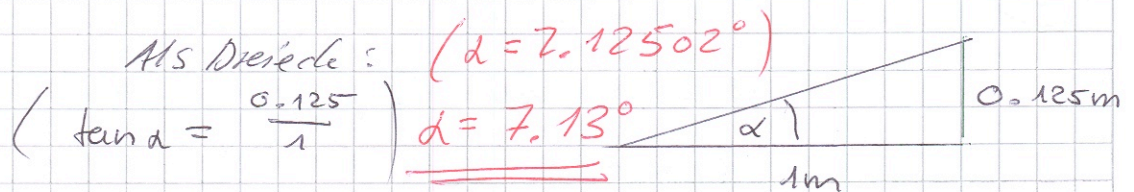 Als Dreieck: (α = 7.12502°)
(tan α = 0.125 / 1) α = 7.13°
α
0.125m
1m